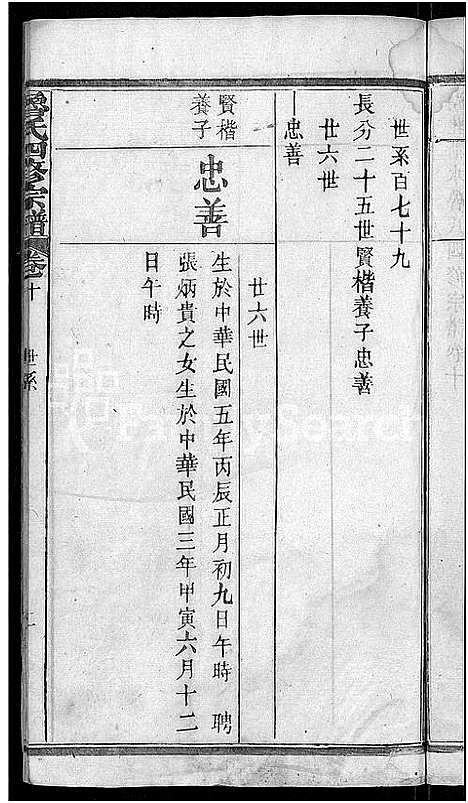 世系百七十九
長分二十五世賢楷養子忠善
廿六世
忠善
廿六世
賢楷
養子
忠善
生於中華民國五年丙辰正月初九日午時 聘
張炳貴之女生於中華民國三年甲寅六月十二
日午時
氏四修宗譜 卷十 世系